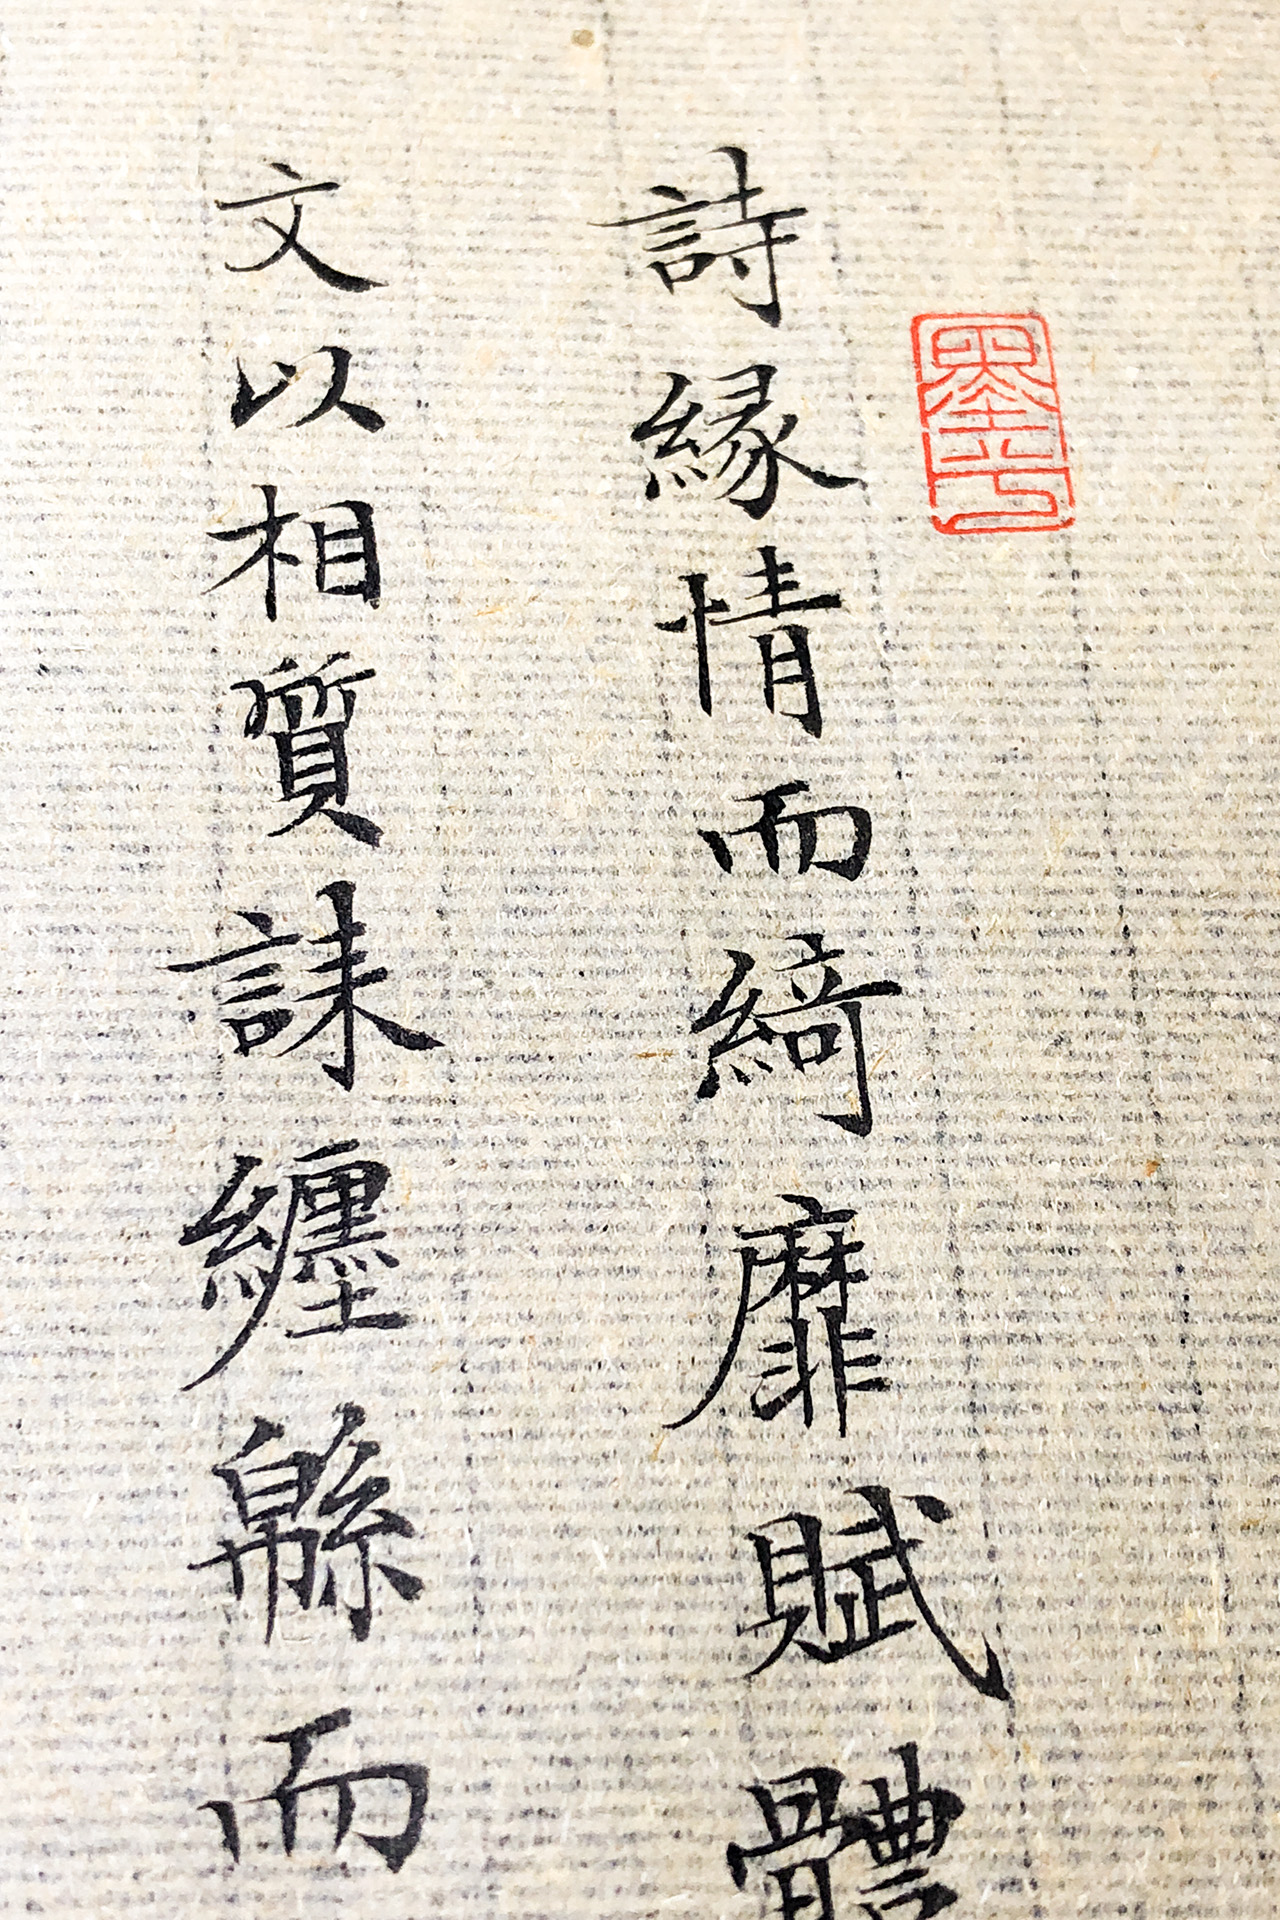 墨
詩縁情而綺靡賦體
文以相質誄纏緜而